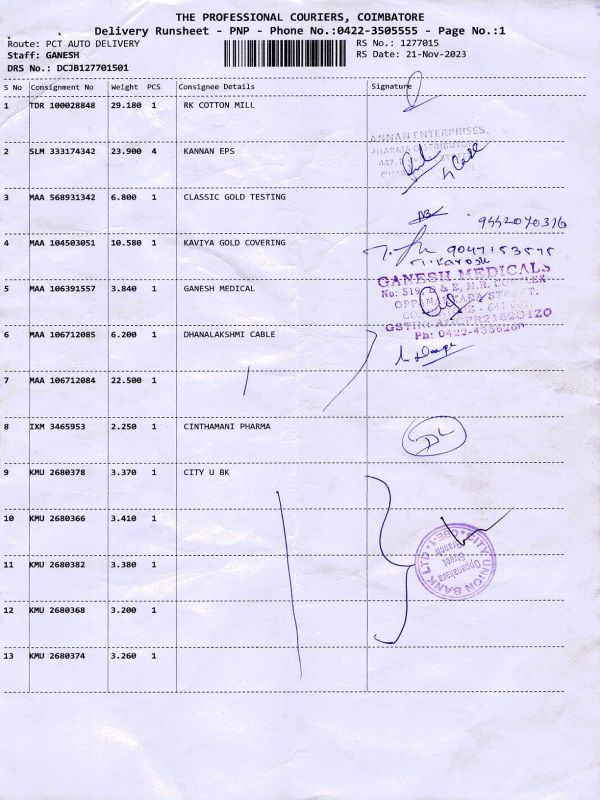 THE PROFESSIONAL COURIERS, COIMBATORE
Delivery Runsheet - PNP - Phone No.:0422-3505555 - Page No.:1
Route: PCT AUTO DELIVERY RS No.: 1277015
Staff: GANESH RS Date: 21-Nov-2023
DRS No.: DCJB127701501
S No Consignment No Weight PCS Consignee Details Signature
1 TDR 100028848 29.180 1 RK COTTON MILL
ANNAN ENTERPRISES,
PHARMA DISTRIBUTORS
2 SLM 333174342 23.900 4 KANNAN EPS
4 Case
3 MAA 568931342 6.800 1 CLASSIC GOLD TESTING
9442070316
4 MAA 104503051 10.580 1 KAVIYA GOLD COVERING
9047153575
GANESH MEDICALS
5 MAA 106391557 3.840 1 GANESH MEDICAL
Ph: 0422-4356260
6 MAA 106712085 6.200 1 DHANALAKSHMI CABLE
7 MAA 106712084 22.500 1
8 IXM 3465953 2.250 1 CINTHAMANI PHARMA
9 KMU 2680378 3.370 1 CITY U BK
10 KMU 2680366 3.410 1
CITY UNION BANK LTD CBE-1
Oppanakara
Street
Branch
11 KMU 2680382 3.380 1
12 KMU 2680368 3.200 1
13 KMU 2680374 3.260 1